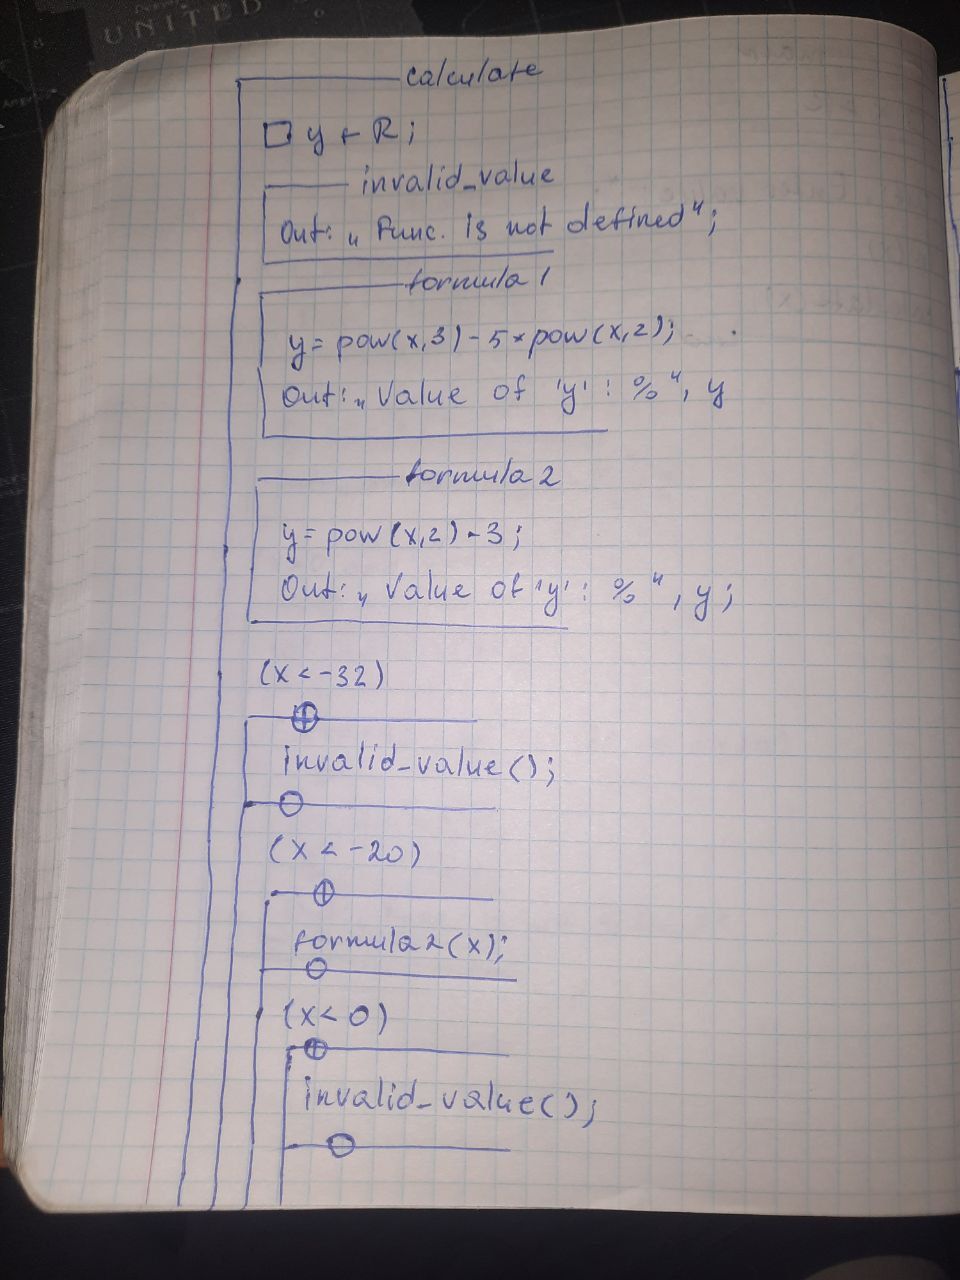 UNITED
calculate
y ← R;
invalid_value
Out: „Func. is not defined";
formula 1
y = pow(x,3) - 5*pow(x,2);
Out: „Value of 'y' : %", y
formula 2
y = pow(x,2) - 3;
Out: „Value of 'y' : %", y;
(x < -32)
invalid_value();
(x < -20)
formula2(x);
(x < 0)
invalid_value();